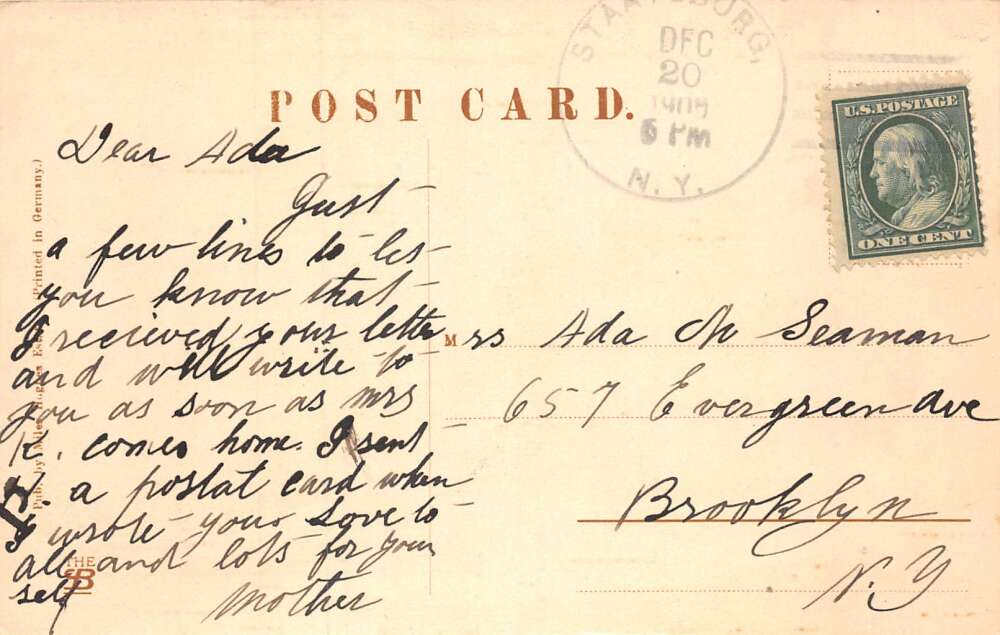 POST CARD.
STAATSBURG,
DEC
20
5 PM
N. Y.
U.S. POSTAGE
ONE CENT
Dear Ada
Just
a few lines to let
you know that
I recieved your letter
and will write to
you as soon as mrs
K. comes home. I sent
a postat card when
I wrote your Love to
all and lots for your
self
Mother
Mrs Ada M Seaman
657 Evergreen ave
Brooklyn
N. Y
(Printed in Germany.)
Pub. by
THE